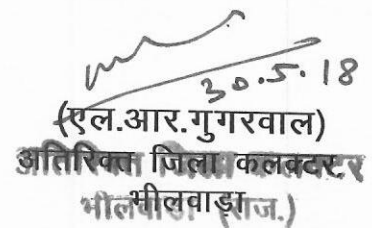 30.5.18
(एल.आर.गुगरवाल)
अतिरिक्त जिला कलक्टर
भीलवाड़ा (राज.)